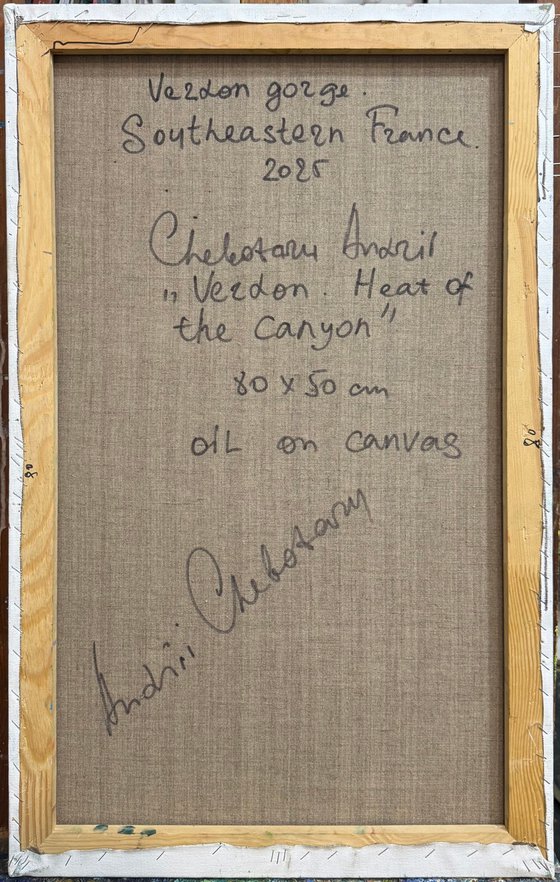 Verdon gorge.
Southeastern France.
2025
Chebotaru Andrii
„Verdon. Heat of
the canyon"
80 x 50 cm
oil on canvas
Andrii Chebotaru
80
80